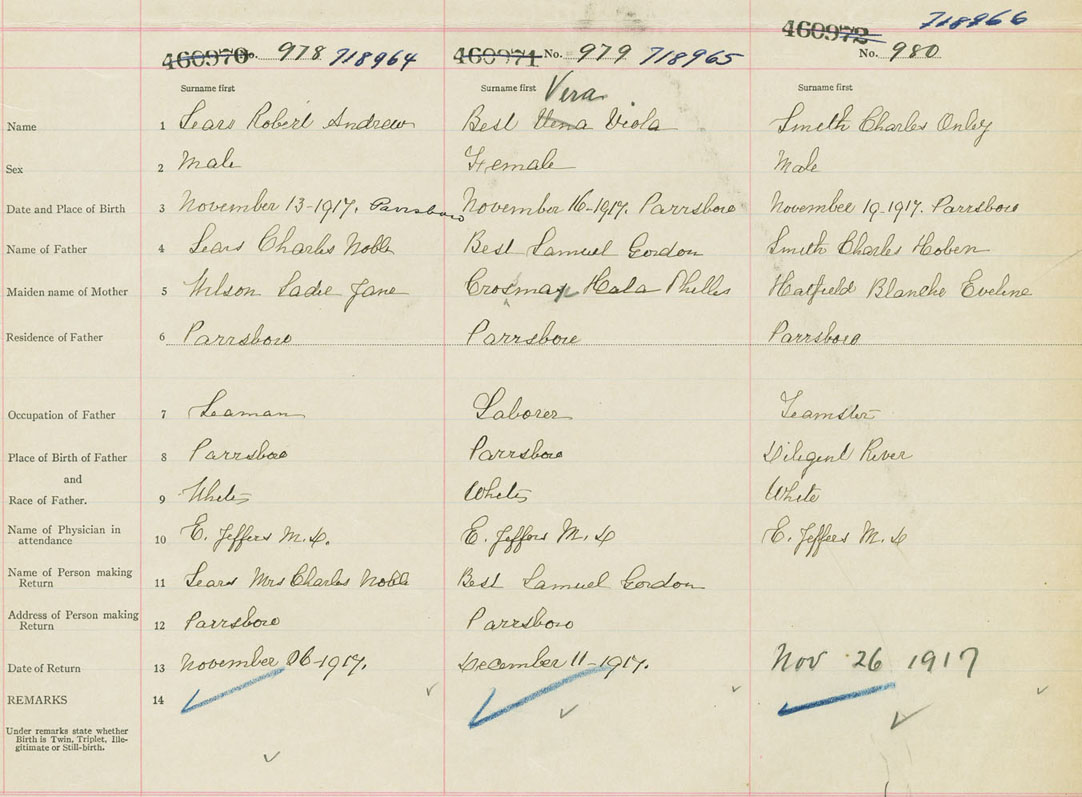 460970 No. 978 718964 460971 No. 979 718965 460972 718966 No. 980
Surname first Surname first Vera Surname first
Name 1 Sears Robert Andrew Best Vena Viola Smith Charles Onley
Sex 2 Male Female Male
Date and Place of Birth 3 November 13-1917. Parrsboro November 16-1917. Parrsboro November 19-1917. Parrsboro
Name of Father 4 Sears Charles Noble Best Samuel Gordon Smith Charles Hoben
Maiden name of Mother 5 Wilson Sadie Jane Hala Phillis Hatfield Blanche Eveline
Residence of Father 6 Parrsboro Parrsboro Parrsboro
Occupation of Father 7 Seaman Laborer Teamster
Place of Birth of Father 8 Parrsboro Parrsboro Diligent River
and
Race of Father. 9 White White White
Name of Physician in attendance 10 E. Jeffers M.D. E. Jeffers M.D E. Jeffers M.D
Name of Person making Return 11 Sears Mrs Charles Noble Best Samuel Gordon
Address of Person making Return 12 Parrsboro Parrsboro
Date of Return 13 November 26-1917. December 11-1917. Nov 26 1917
REMARKS 14
Under remarks state whether
Birth is Twin, Triplet, Ille-
gitimate or Still-birth.